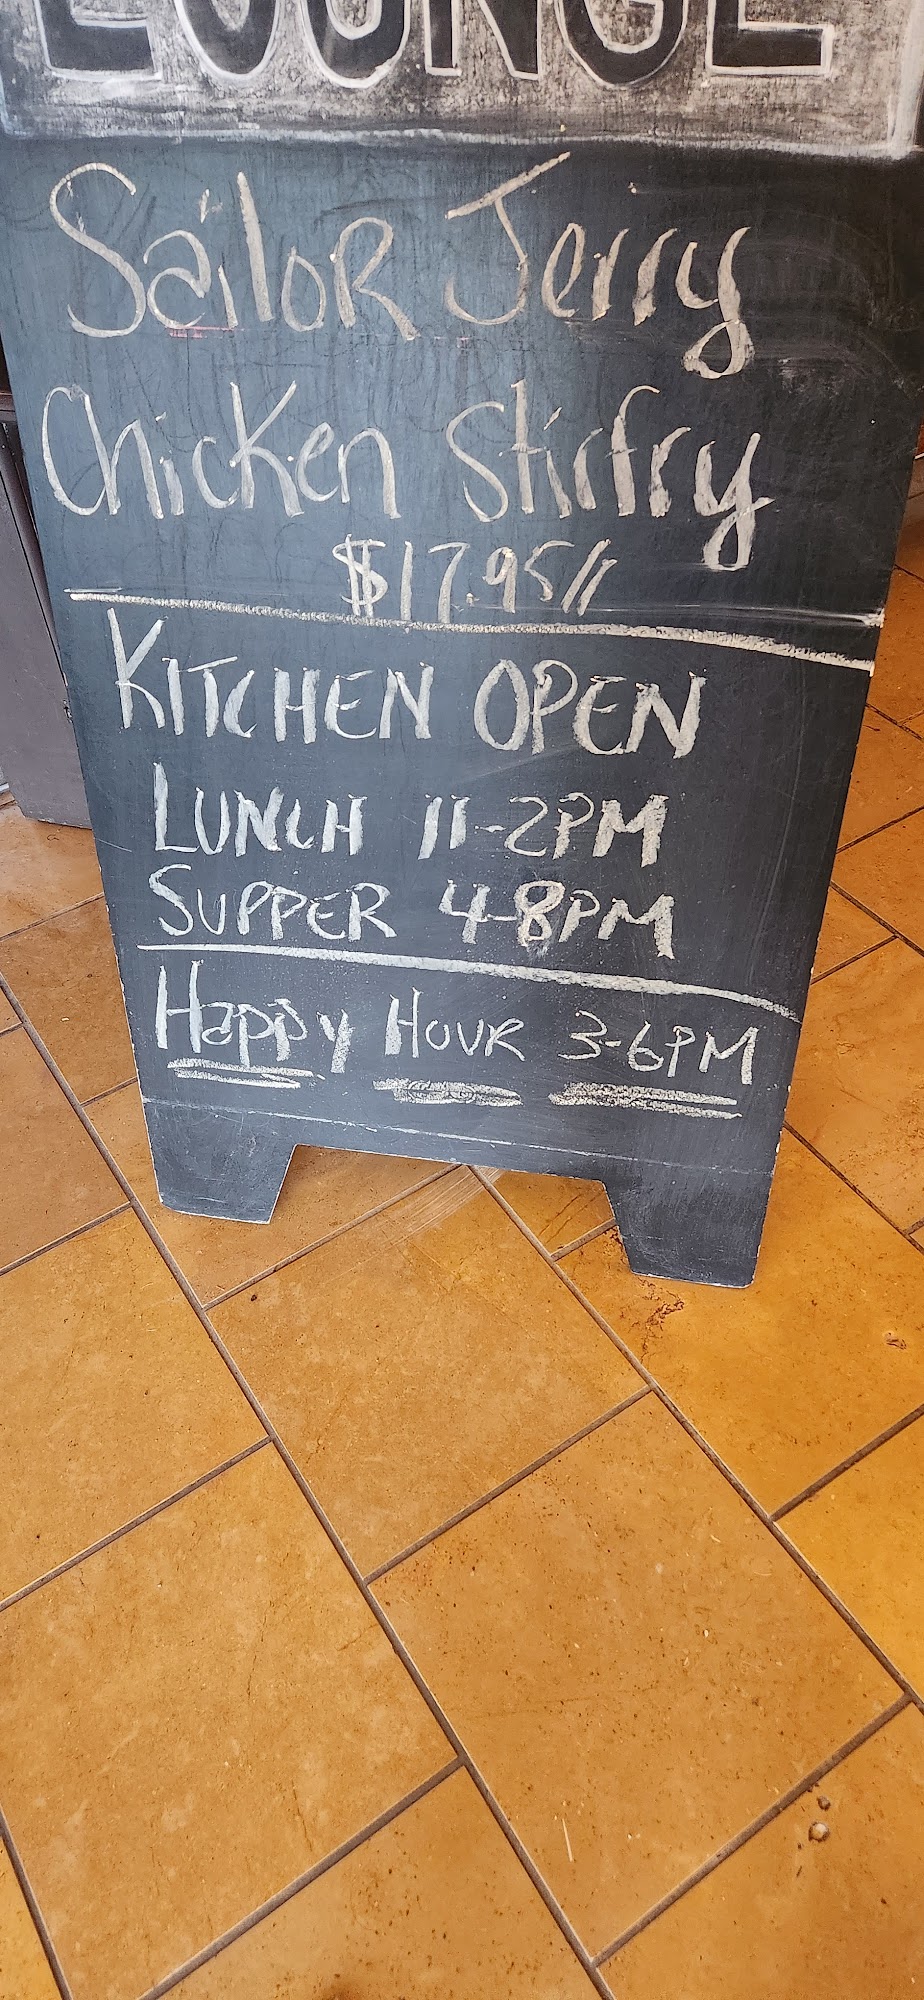 LOUNGE
Sailor Jerry
Chicken Stirfry
$17.95//
KITCHEN OPEN
LUNCH 11-2PM
SUPPER 4-8PM
Happy Hour 3-6PM